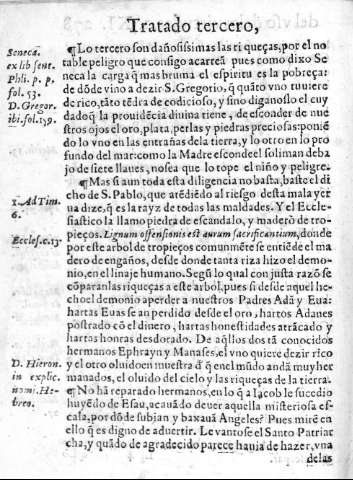 Tratado tercero,
Seneca.
ex lib sent.
Phli. p. p.
fol. 53.
D. Gregor.
ibi.fol.159.
1.Ad Tim.
6.
Eccles.c.13
D. Hieron.
in explic.
nomi. He-
breo.
¶Lo tercero son dañosissimas las riquezas, por el no
table peligro que consigo acarreã pues como dixo Se
neca la carga q̃ mas bruma el espiritu es la pobreça:
de dõde vino a dezir S. Gregorio, q̃ quãto vno tuuiere
de rico, tãto tẽdra de codicioso, y sino diganoslo el cuy
dado q̃ la prouidẽcia diuina tiene, de esconder de nue
stros ojos el oro, plata, perlas y piedras preciosas: poniẽ
do lo vno en las entrañas dela tierra, y lo otro en lo pro
fundo del mar: como la Madre esconde el soliman deba
jo de siete llaues, no sea que lo tope el niño y peligre.
¶Mas si aun toda esta diligencia no basta, baste el di
cho de S. Pablo, que atẽdiẽdo al riesgo desta mala yer
ua dize, q̃ es la rayz de todas las maldades. Y el Eccle-
siastico la llamo piedra de escandalo, y madero de tro-
pieços. Lignum offensionis est aurum sacrificantium, donde
por este arbol de tropieços comunmẽte se entiẽde el ma
dero de engaños, desde donde tanta riza hizo el demo-
nio, en el linaje humano. Segũ lo qual con justa razõ se
cõparan las riquezas a este arbol, pues si desde aquel he-
cho el demonio a perder a nuestros Padres Adã y Eua:
hartas Euas se an perdido desde el oro, hartos Adanes
postrado cõ el dinero, hartas honestidades atrãcado y
hartas honras desdorado. De aq̃llos dos tã conocidos
hermanos Ephrayn y Manases, el vno quiere dezir rico
y el otro oluido en muestra d̃ q̃ en el mũdo andã muy her
manados, el oluido del cielo y las riqueças de la tierra.
¶No hã reparado hermanos, en lo q̃ a Iacob le sucedio
huyẽdo de Esau, acauãdo de uer aquella misteriosa es-
cala, por dõde subian y baxauã Angeles? Pues mirẽ en
ello q̃ es digno de aduertir. Leuantose el Santo Patriar
cha, y quãdo de agradecido parece hauia de hazer, vna
delas